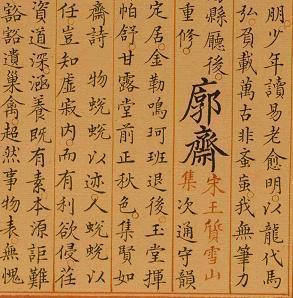 朋少年讀易老愈明以龍代馬
弘負載萬古非蚉蝱我無筆力
縣廳後
重修
廓齋
宋王質雪山
集次通守韻
定居金勒鳴珂班退後玉堂揮
帕舒甘露堂前正秋色集賢如
齋詩 物蛻蛻以迹人蛻蛻以
任豈知虛寂內而有利欲侵荏
資道深涵養既有素本源詎難
豁豁遺巢禽超然事物表無愧